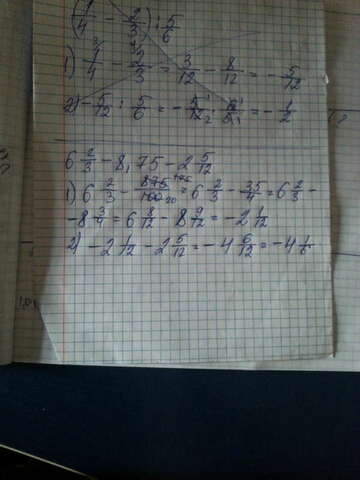 (1/4 - 2/3) : 5/6
1) 1/4 - 2/3 = 3/12 - 8/12 = - 5/12
2) - 5/12 : 5/6 = - 5/12 · 6/5 = - 1/2
6 2/3 - 8,75 - 2 5/12
1) 6 2/3 - 875/100 = 6 2/3 - 35/4 = 6 2/3 -
- 8 3/4 = 6 8/12 - 8 9/12 = - 2 1/12
2) - 2 1/12 - 2 5/12 = - 4 6/12 = - 4 1/6